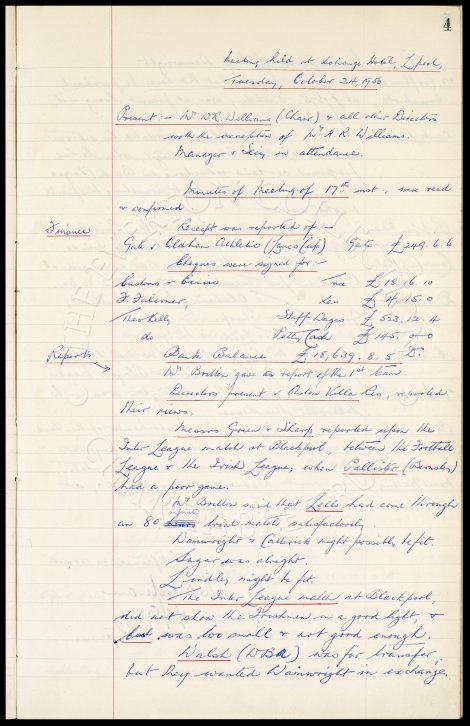 4
Meeting held at Exchange Hotel, L'pool,
Tuesday, October 24, 1950
Present :- Mr W.R. Williams (Chair) & all other Directors
with the exception of Mr A. R. Williams.
Manager & Secy in attendance.
Minutes of Meeting of 17th inst., were read
& confirmed
Finance Receipt was reported of :-
Gate v Oldham Athletic (Lancs Cup) Gate £249. 6. 6
Cheques were signed for :-
Customs & Excise Tax £18. 16. 10
F. Falconer, £4. 15. 0
Theo Kelly Staff Wages £523. 12. 4
do Petty Cash £145. 0. 0
Bank Balance £18,639. 8. 5 Dr.
Reports Mr Britton gave as report of the 1st team.
Directors present v Aston Villa Res, reported
their views.
Messrs Green & Sharp reported upon the
Inter League match at Blackpool, between the Football
League & the Irish League, when Pallister (Barnsley)
had a poor game.
Mr Britton said that Lello had come through
minutes
an 80 trial match, satisfactorily.
Wainwright & Catterick might possibly be fit.
Sugar was alright.
Lindley might be fit.
The Inter League match at Blackpool,
did not show the Irishmen in a good light, &
was too small & not good enough.
Walsh (WBA) was for transfer,
but they wanted Wainwright in exchange.